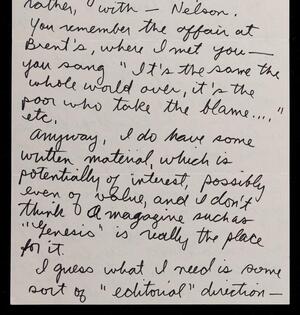 rather, with — Nelson.
You remember the affair at
Brent's, where I met you —
you sang "It's the same the
whole world over, it's the
poor who take the blame...."
etc.
Anyway, I do have some
written material, which is
potentially of interest, possibly
even of value, and I don't
think a magazine such as
"Genesis" is really the place
for it.
I guess what I need is some
sort of "editorial" direction —